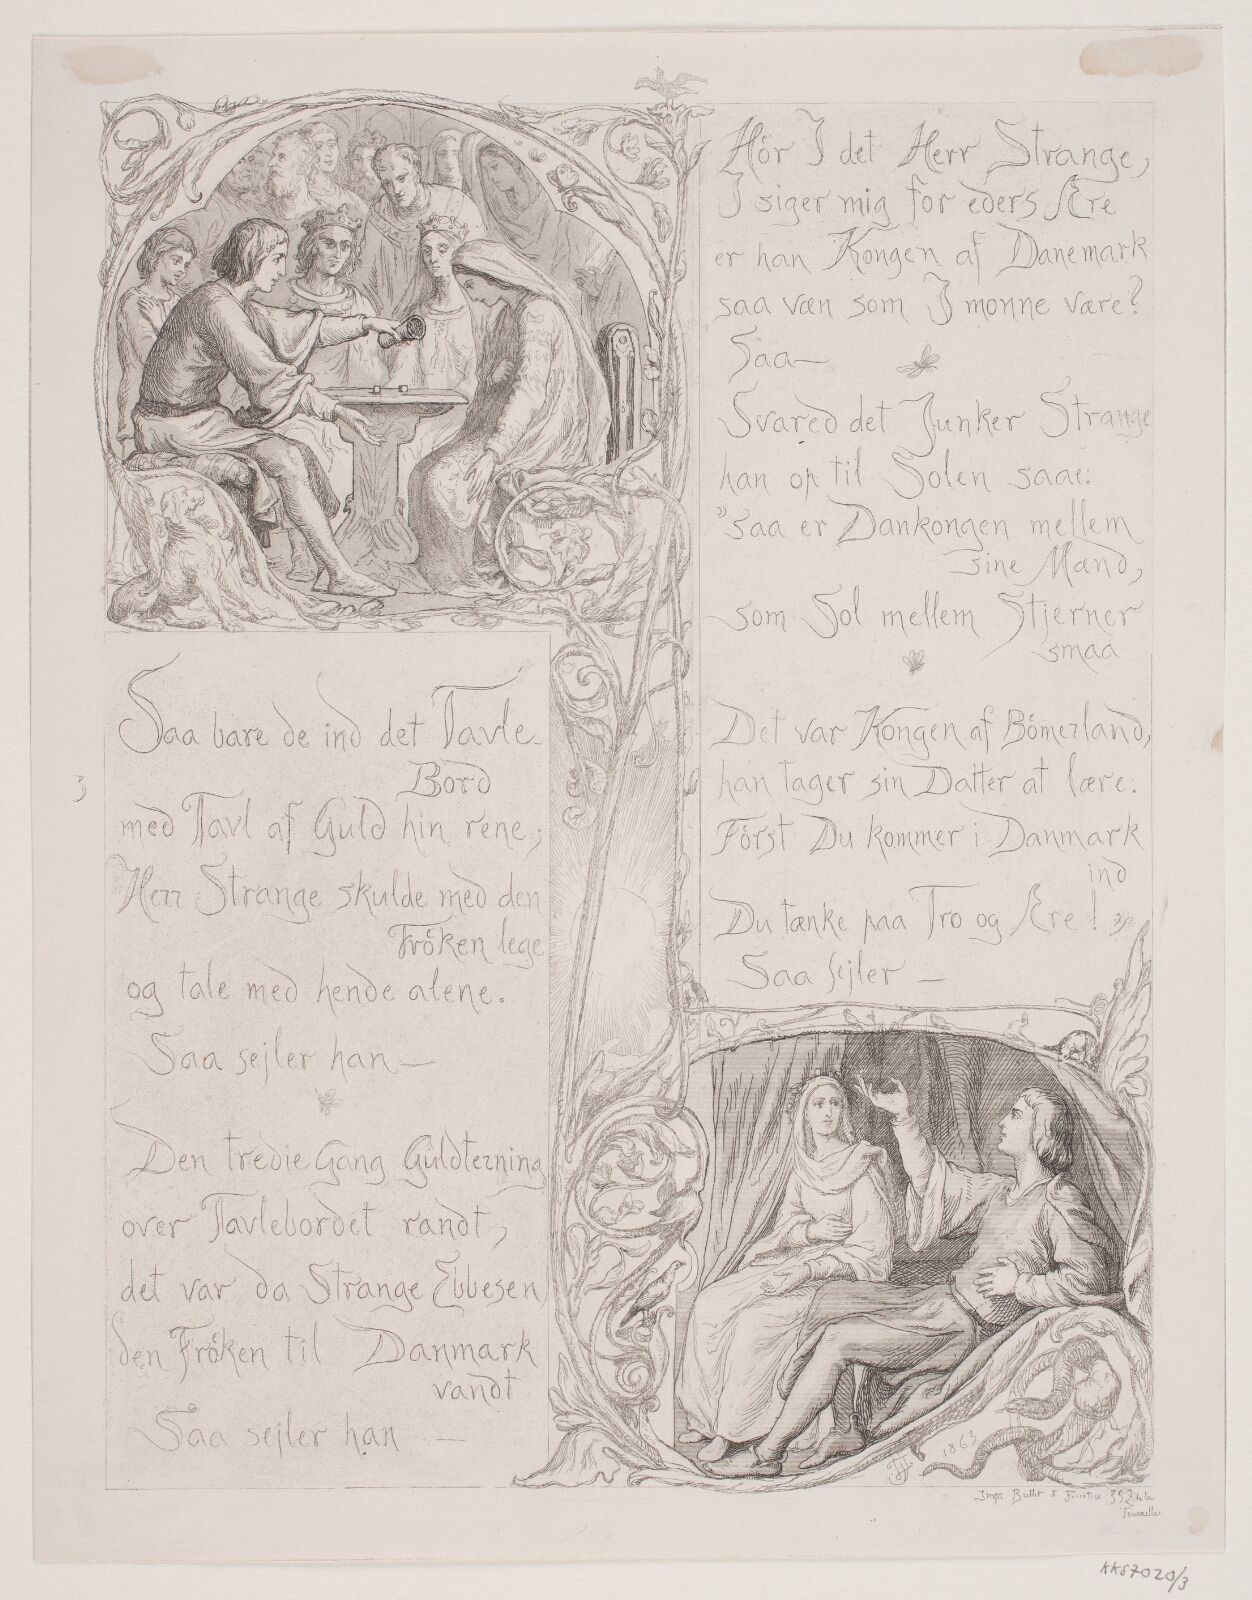 Saa bare de ind det Tavle-
Bord
med Tavl af Guld hin rene;
Herr Strange skulde med den
Fröken lege
og tale med hende alene.
Saa sejler han —
Den tredie Gang Guldterning
over Tavlebordet randt,
det var da Strange Ebbesen
den Fröken til Danmark
vandt
Saa sejler han —
Hör I det Herr Strange,
I siger mig for eders Ære
er han Kongen af Danemark
saa væn som I monne være?
Saa —
Svared det Junker Strange
han op til Solen saae:
"saa er Dankongen mellem
sine Mænd,
som Sol mellem Stjerner
smaa
Det var Kongen af Bömerland,
han tager sin Datter at lære:
Först Du kommer i Danmark
ind
Du tænke paa Tro og Ære!
Saa sejler —
3
1863
Impr
KKS7020/3